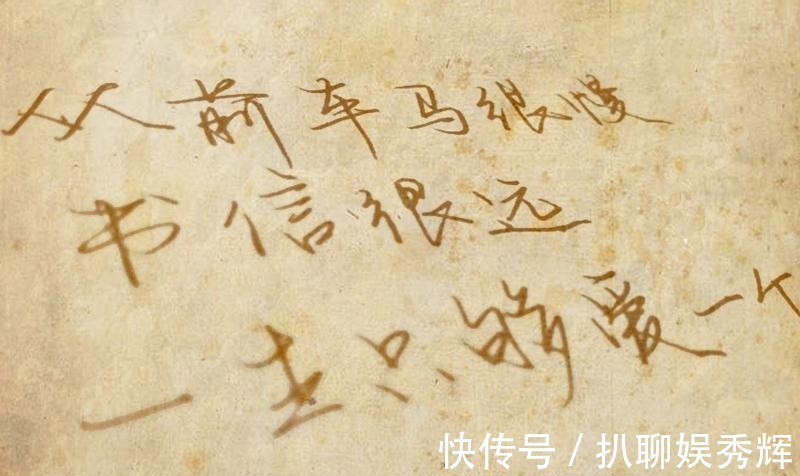 从前车马很慢
书信很远
一生只够爱一个
快传号 / 扒聊娱秀辉